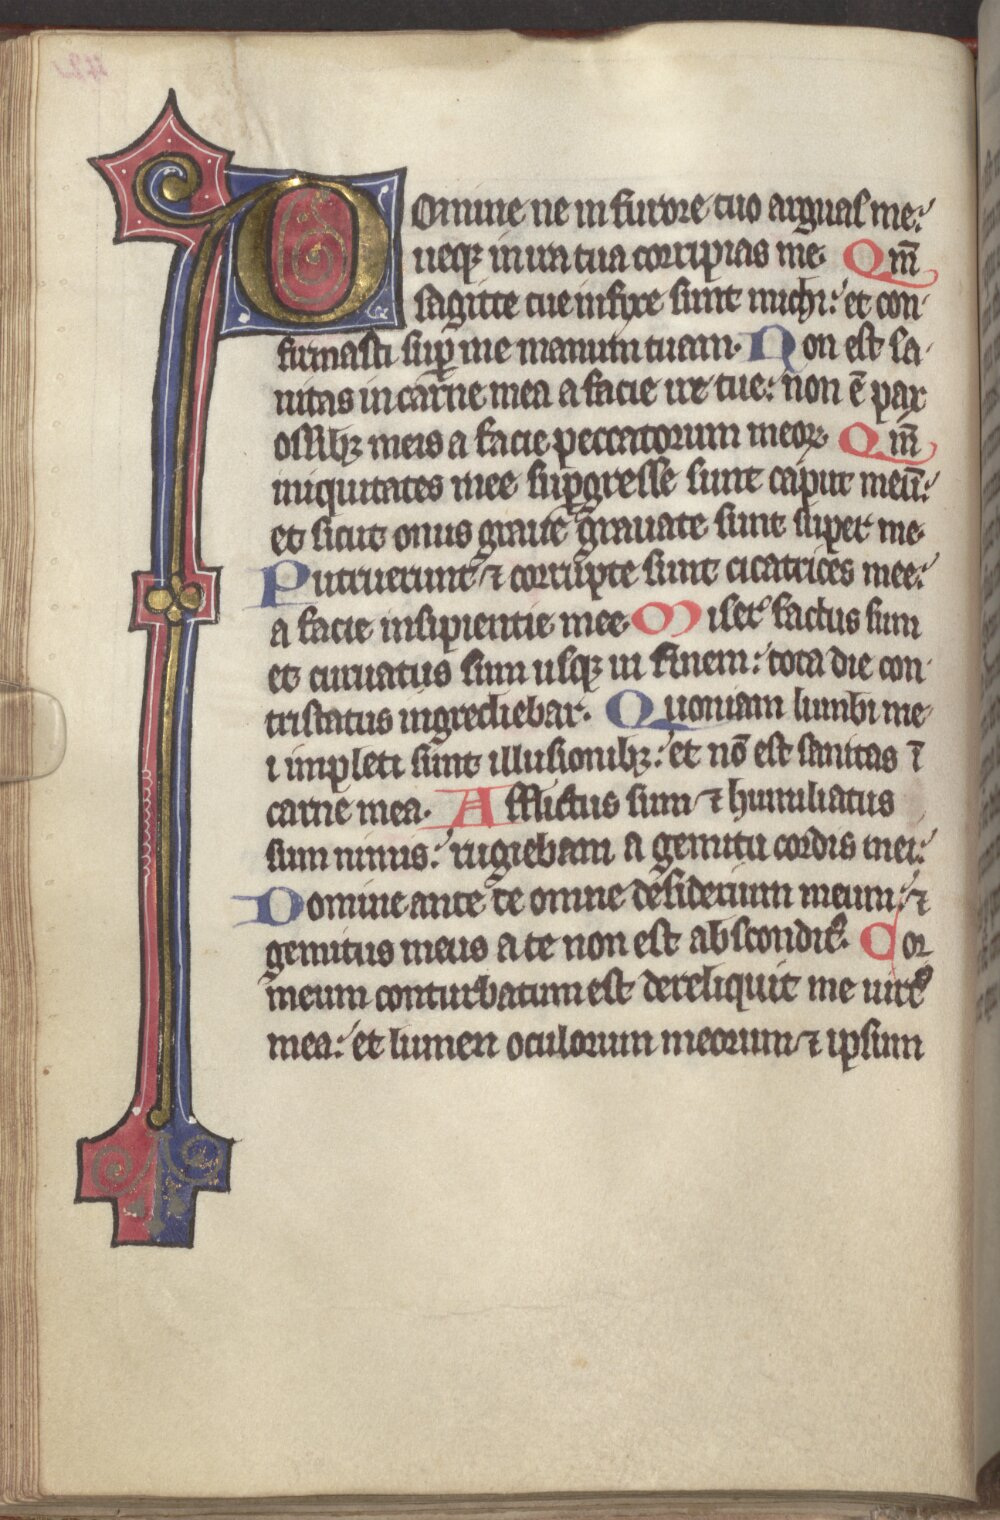 Domine ne in furore tuo arguas me:
neqꝫ in ira tua corripias me. Qm̄
sagitte tue infixe sunt michi: et con-
firmasti suꝑ me manum tuam. Non est sa-
nitas in carne mea a facie ire tue: non ē pax
ossibꝫ meis a facie peccatorum meoꝝ. Qm̄
iniquitates mee suꝑgresse sunt caput meū:
et sicut onus graue grauate sunt super me.
Putruerunt ⁊ corrupte sunt cicatrices mee:
a facie insipientie mee. Miser factus sum
et curuatus sum usqꝫ in finem: tota die con-
tristatus ingrediebar. Quoniam lumbi me-
i impleti sunt illusionibꝫ: et nō est sanitas ī
carne mea. Afflictus sum ⁊ humiliatus
sum nimis: rugiebam a gemitu cordis mei:
Domine ante te omne desiderium meum: ⁊
gemitus meus a te non est absconditꝰ. Cor
meum conturbatum est dereliquit me uirtꝰ
mea: et lumen oculorum meorum ⁊ ipsum